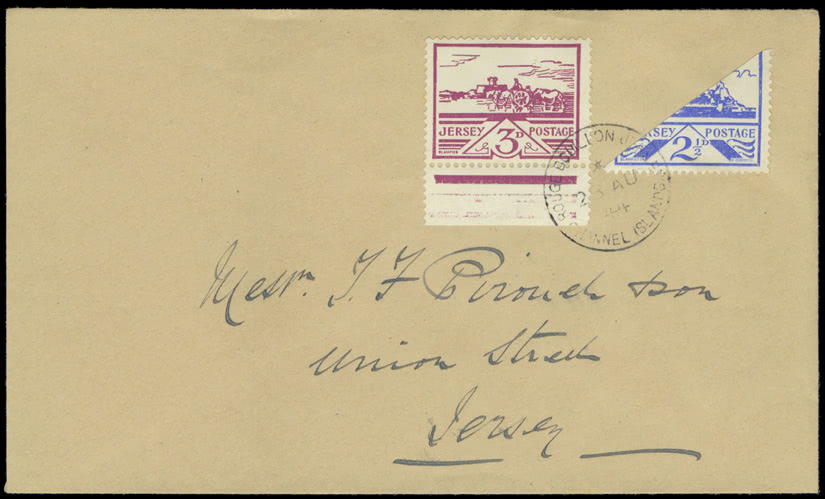 JERSEY 3D POSTAGE
JERSEY POSTAGE
2½D
ROUGE BOUILLON J
AU
44
CHANNEL ISLANDS
Messrs. J. F. Pirouet & son
Union Street
Jersey